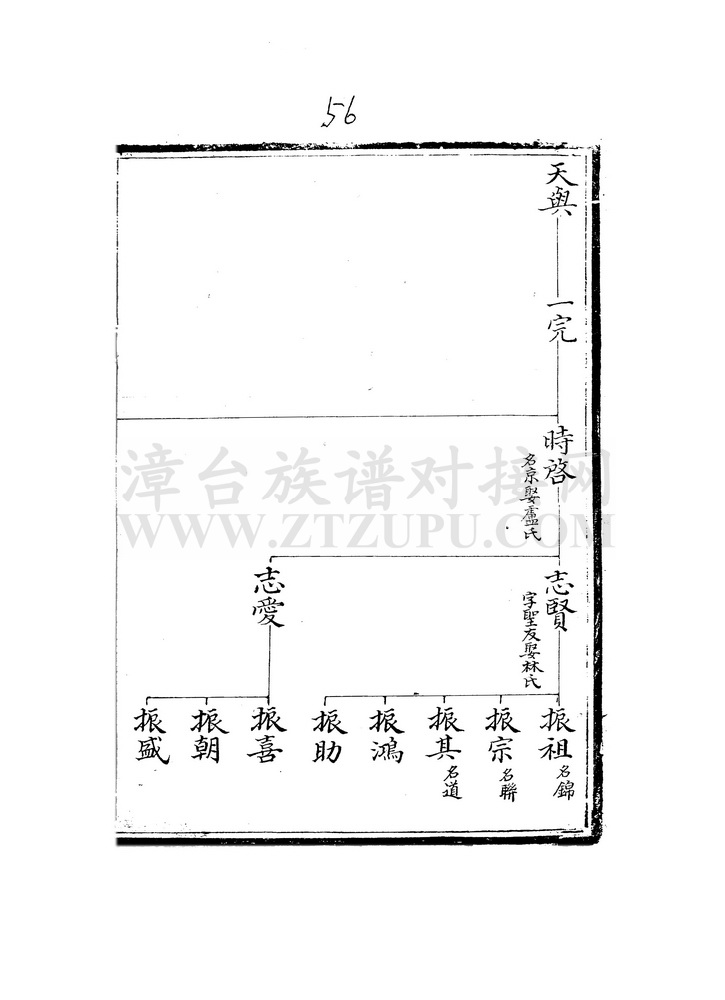 56
天與
一完
時啓
名京娶盧氏
志賢
字聖友娶林氏
志愛
振祖
名錦
振宗
名聯
振其
名道
振鴻
振助
振喜
振朝
振盛
漳台族谱对接网
WWW.ZTZUPU.COM